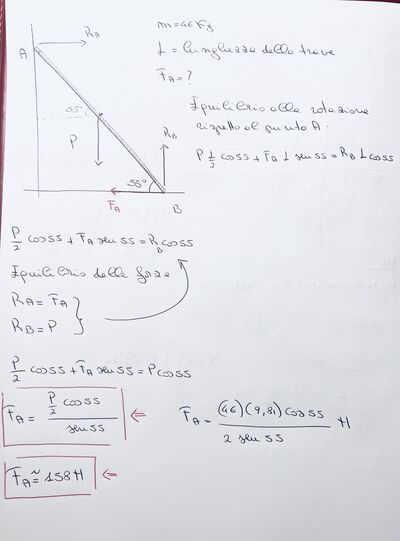 m = 46 Kg
L = lunghezza della trave
FA = ?
Equilibrio alla rotazione
rispetto al punto A.
P L/2 cos55 + FA L sen 55 = RB L cos55
A
RA
55°
P
RB
55°
FA
B
P/2 cos55 + FA sen 55 = RB cos55
Equilibrio delle forze
RA = FA
RB = P
P/2 cos55 + FA sen 55 = P cos55
FA = P/2 cos55 / sen 55
FA = (46)(9,81) cos55 / 2 sen 55 N
FA ≃ 158 N